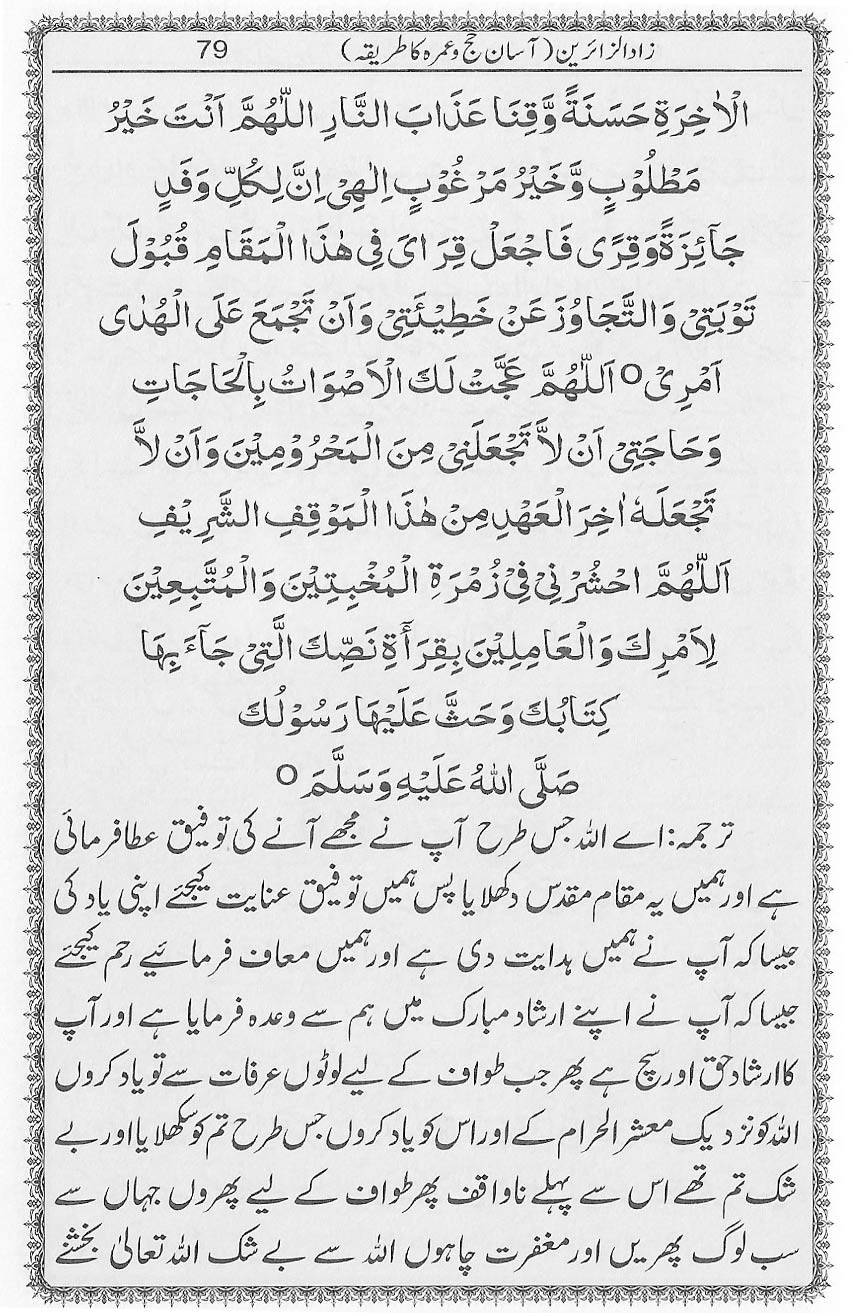 زاد الزائرین (آسان حج و عمرہ کا طریقہ) 79
الْاٰخِرَةِ حَسَنَةً وَّقِنَا عَذَابَ النَّارِ اللّٰهُمَّ اَنْتَ خَيْرُ
مَطْلُوْبٍ وَّخَيْرُ مَرْغُوْبٍ اِلٰهِىْ اِنَّ لِكُلِّ وَفَدٍ
جَآئِزَةً وَقِرًى فَاجْعَلْ قِرَاىَ فِى هٰذَا الْمَقَامِ قُبُوْلَ
تَوْبَتِىْ وَالتَّجَاوُزَ عَنْ خَطِيْئَتِىْ وَاَنْ تَجْمَعَ عَلَى الْهُدٰى
اَمْرِىْ ○ اَللّٰهُمَّ عَجَّتْ لَكَ الْاَصْوَاتُ بِالْحَاجَاتِ
وَحَاجَتِىْ اَنْ لاَّ تَجْعَلَنِىْ مِنَ الْمَحْرُوْمِيْنَ وَاَنْ لاَّ
تَجْعَلَهٗ اٰخِرَ الْعَهْدِ مِنْ هٰذَا الْمَوْقِفِ الشَّرِيْفِ
اَللّٰهُمَّ احْشُرْنِىْ فِىْ زُمْرَةِ الْمُخْبِتِيْنَ وَالْمُتَّبِعِيْنَ
لِاَمْرِكَ وَالْعَامِلِيْنَ بِقِرَأَةِ نَصِّكَ الَّتِىْ جَآءَ بِهَا
كِتَابُكَ وَحَثَّ عَلَيْهَا رَسُوْلُكَ
صَلَّى اللهُ عَلَيْهِ وَسَلَّمَ ○
ترجمہ: اے اللہ جس طرح آپ نے مجھے آنے کی توفیق عطا فرمائی
ہے اور ہمیں یہ مقام مقدس دکھلایا پس ہمیں توفیق عنایت کیجئے اپنی یاد کی
جیسا کہ آپ نے ہمیں ہدایت دی ہے اور ہمیں معاف فرمائیے رحم کیجئے
جیسا کہ آپ نے اپنے ارشاد مبارک میں ہم سے وعدہ فرمایا ہے اور آپ
کا ارشاد حق اور سچ ہے پھر جب طواف کے لیے لوٹوں عرفات سے تو یاد کروں
اللہ کو نزدیک معشر الحرام کے اور اس کو یاد کروں جس طرح تم کو سکھلایا اور بے
شک تم تھے اس سے پہلے ناواقف پھر طواف کے لیے پھروں جہاں سے
سب لوگ پھریں اور مغفرت چاہوں اللہ سے بے شک اللہ تعالیٰ بخشنے